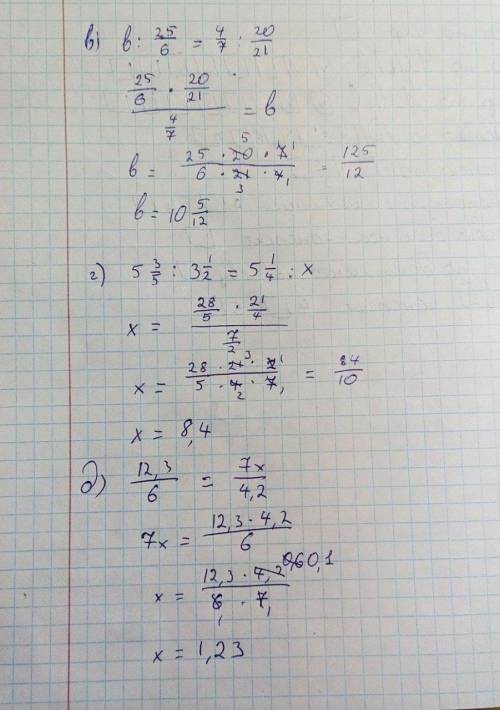 в) b : 25/6 = 4/7 : 20/21
(25/6 · 20/21) / (4/7) = b
b = (25 · 20 5 · 7 1) / (6 · 21 3 · 4 1) = 125/12
b = 10 5/12
г) 5 3/5 : 3 1/2 = 5 1/4 : x
x = (28/5 · 21/4) / (7/2)
x = (28 · 21 3 · 2 1) / (5 · 4 2 · 7 1) = 84/10
x = 8,4
д) 12,3/6 = 7x/4,2
7x = (12,3 · 4,2) / 6
x = (12,3 · 4,2 0,6 0,1) / (6 1 · 7 1)
x = 1,23